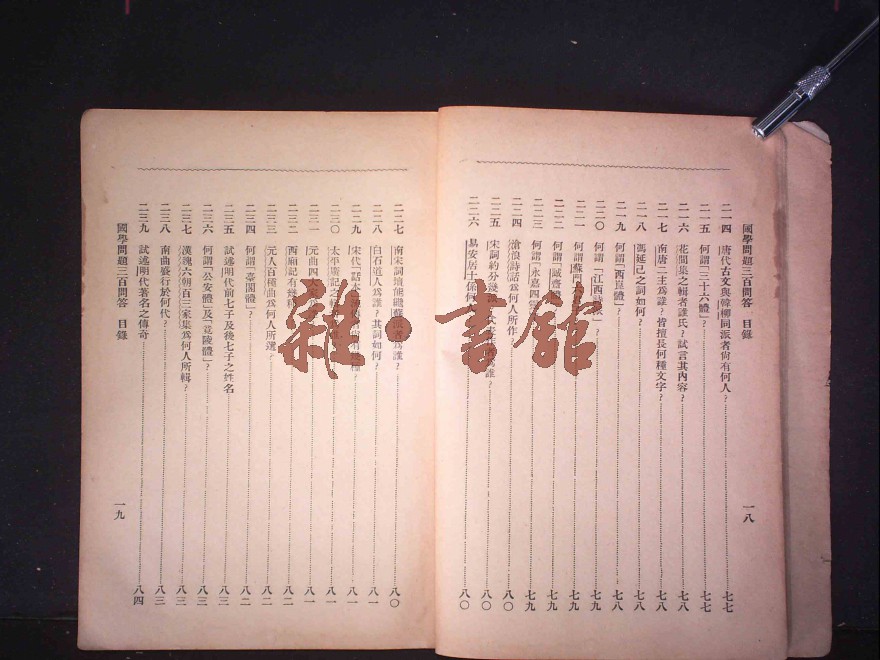 國學問題三百問答 目錄
一八
二一四 唐代古文與韓柳同派者尙有何人？ 七七
二一五 何謂「三十六體」？ 七七
二一六 花間集之輯者誰氏？試言其內容？ 七八
二一七 南唐二主爲誰？皆擅長何種文字？ 七八
二一八 馮延己之詞如何？ 七八
二一九 何謂「西崑體」？ 七八
二二〇 何謂「江西詩 」？ 七九
二二一 何謂蘇門 七九
二二二 何謂「誠齋 七九
二二三 何謂「永嘉四 七九
二二四 滄浪詩話爲何人所作 八〇
二二五 宋詞約分幾 爲誰？ 八〇
二二六 易安居士係何 八〇
二二七 南宋詞壇能繼蘇派者爲誰？ 八〇
二二八 白石道人爲誰？其詞如何？ 八一
二二九 宋代「話本 八一
二三〇 太平廣記之輯 八一
二三一 元曲四大 八一
二三二 西廂記有幾種 八二
二三三 元人百種曲爲何人所選？ 八二
二三四 何謂「臺閣體」？ 八二
二三五 試述明代前七子及後七子之姓名 八三
二三六 何謂「公安體」及「竟陵體」？ 八三
二三七 漢魏六朝百三家集爲何人所輯？ 八三
二三八 南曲盛行於何代？ 八三
二三九 試述明代著名之傳奇 八四
國學問題三百問答 目錄
一九
雜·書館